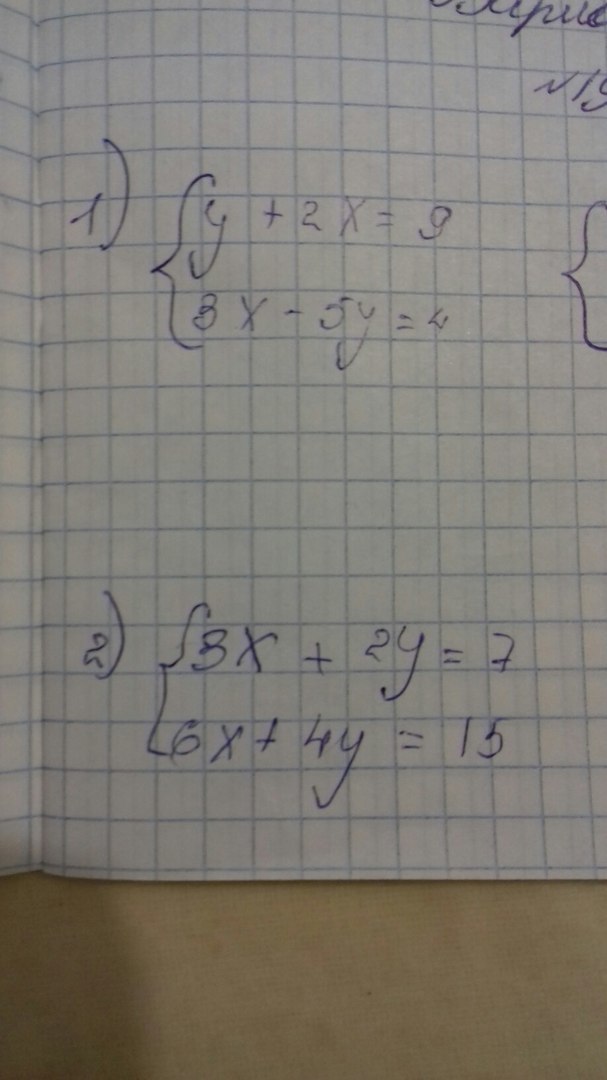 1) { y + 2x = 9
3x - 5y = 4
2) { 3x + 2y = 7
6x + 4y = 15